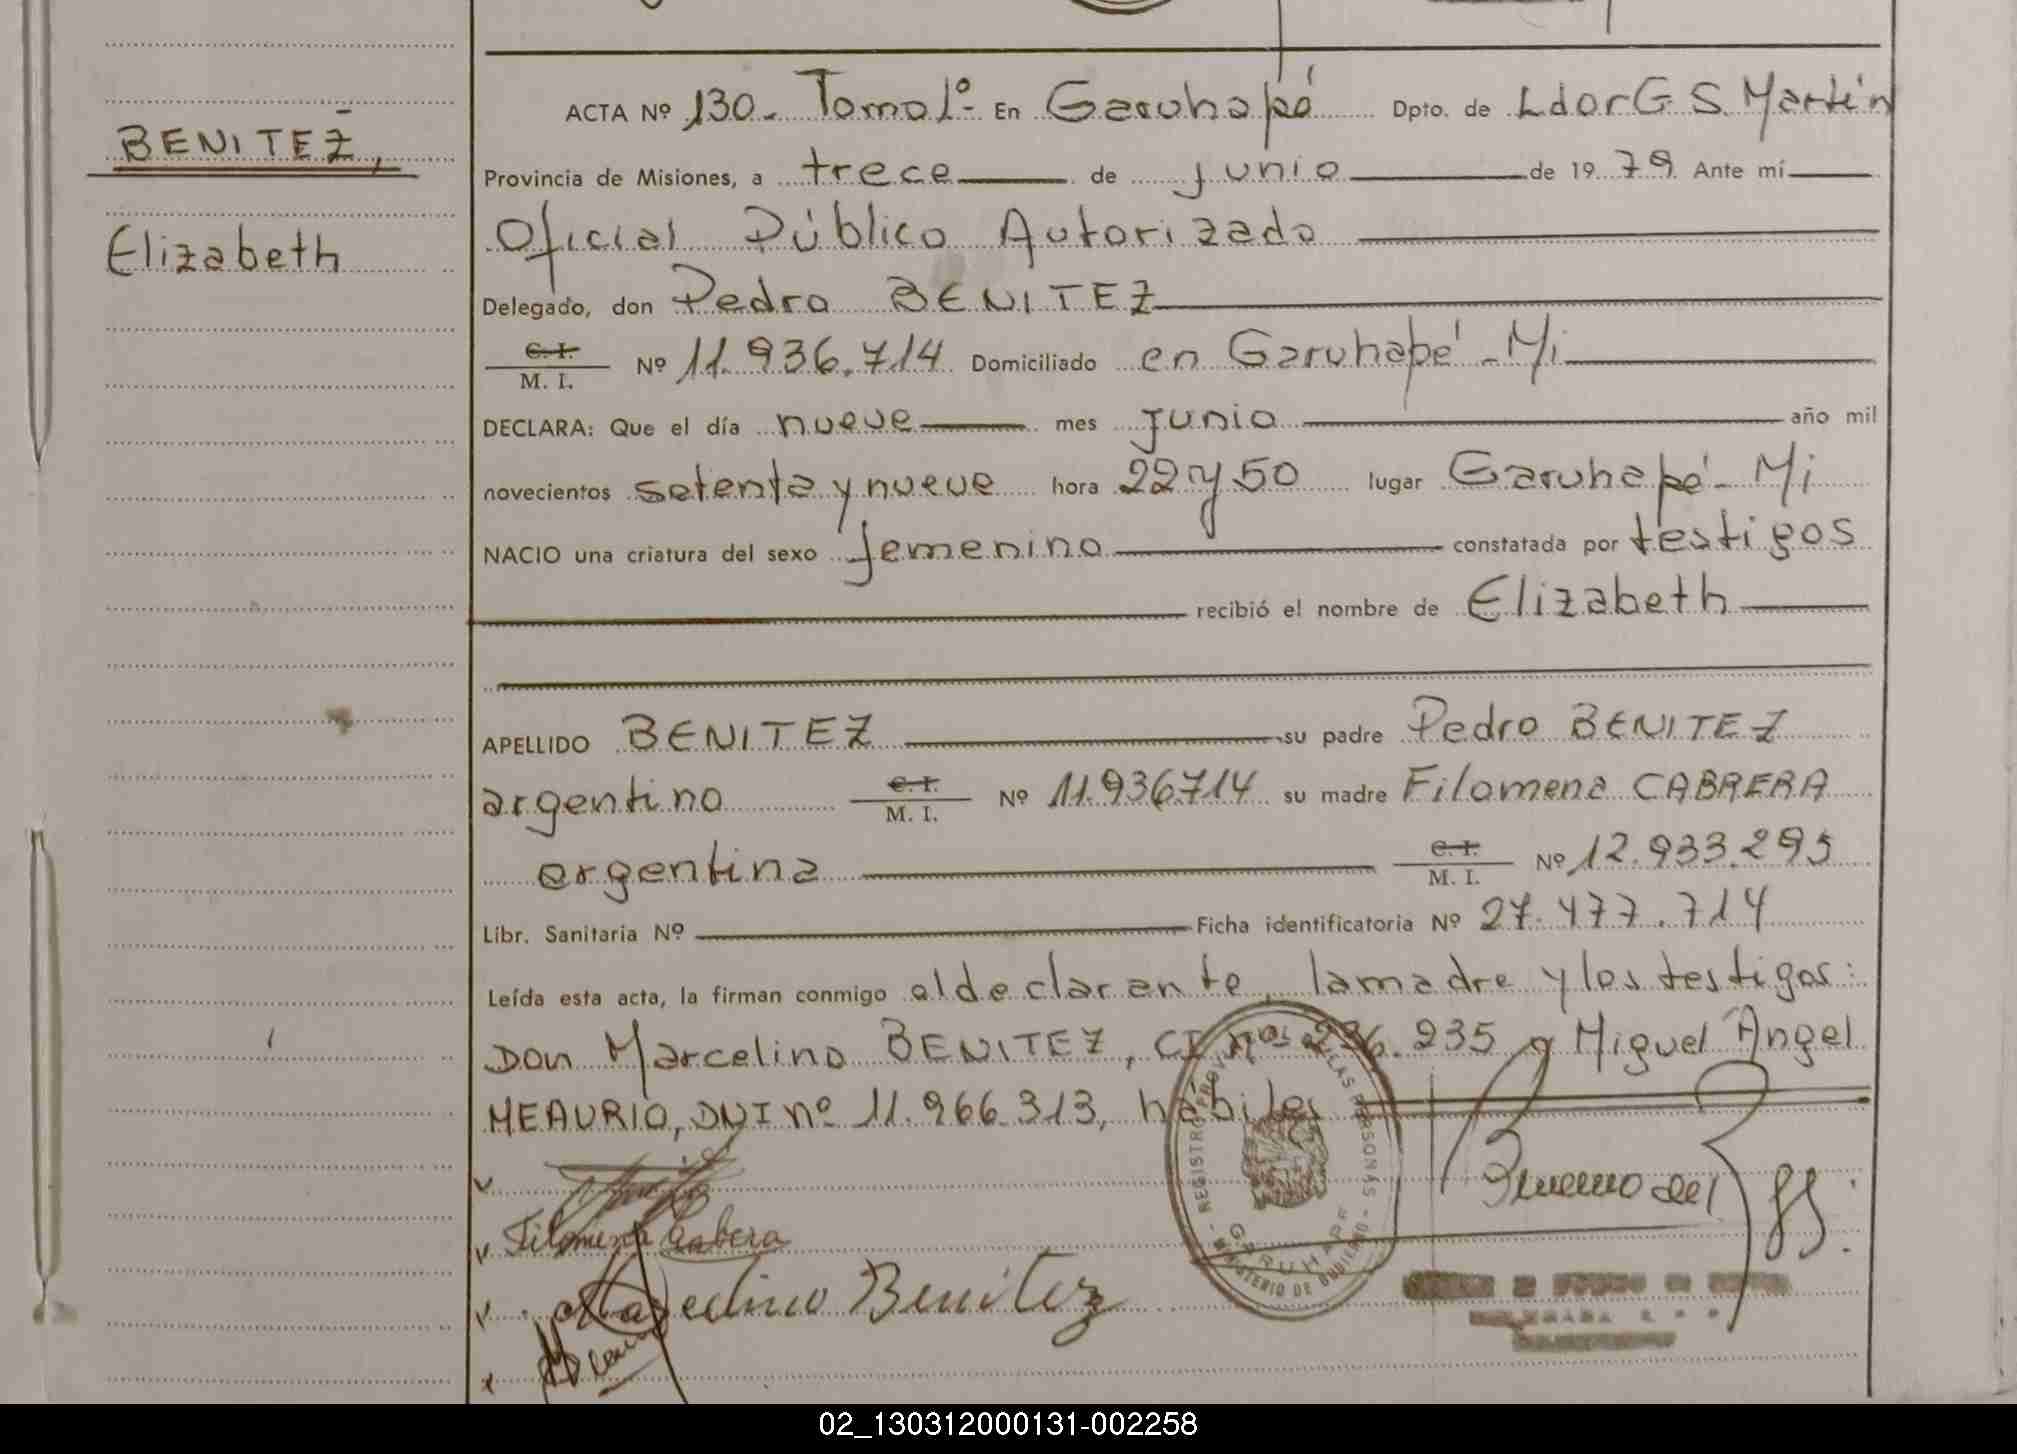 BENITEZ,
Elizabeth
ACTA Nº 130.- Tomo 1º- En Garuhapé Dpto. de LdorG.S.Martín
Provincia de Misiones, a trece de junio de 1979 Ante mí
Oficial Público Autorizado
Delegado, don Pedro BENITEZ
C.I. / M. I. Nº 11.936.714 Domiciliado en Garuhapé-Mi
DECLARA: Que el día nueve mes junio año mil
novecientos setenta y nueve hora 22 y 50 lugar Garuhapé-Mi
NACIO una criatura del sexo femenino constatada por testigos
recibió el nombre de Elizabeth
APELLIDO BENITEZ su padre Pedro BENITEZ
argentino C.I. / M. I. Nº 11.936714 su madre Filomena CABRERA
argentina C.I. / M. I. Nº 12.933.295
Libr. Sanitaria Nº Ficha identificatoria Nº 27.477.714
Leída esta acta, la firman conmigo el declarante, la madre y los testigos:
Don Marcelino BENITEZ, CI nº 236.235 y Miguel Angel
MEAURIO, DNI nº 11.966.313, hábiles
Filomena Cabrera
Marcelino Benitez
REGISTRO PROVINCIAL DE LAS PERSONAS
GARUHAPE
MINISTERIO DE GOBIERNO
02_130312000131-002258